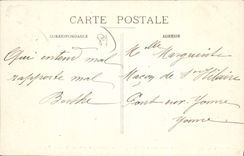 CARTE POSTALE
CORRESPONDANCE
ADRESSE
Qui entend mal
rapporte mal
Berthe
Mlle Marguerite
Maçon de St Hilaire
Pont sur Yonne
Yonne